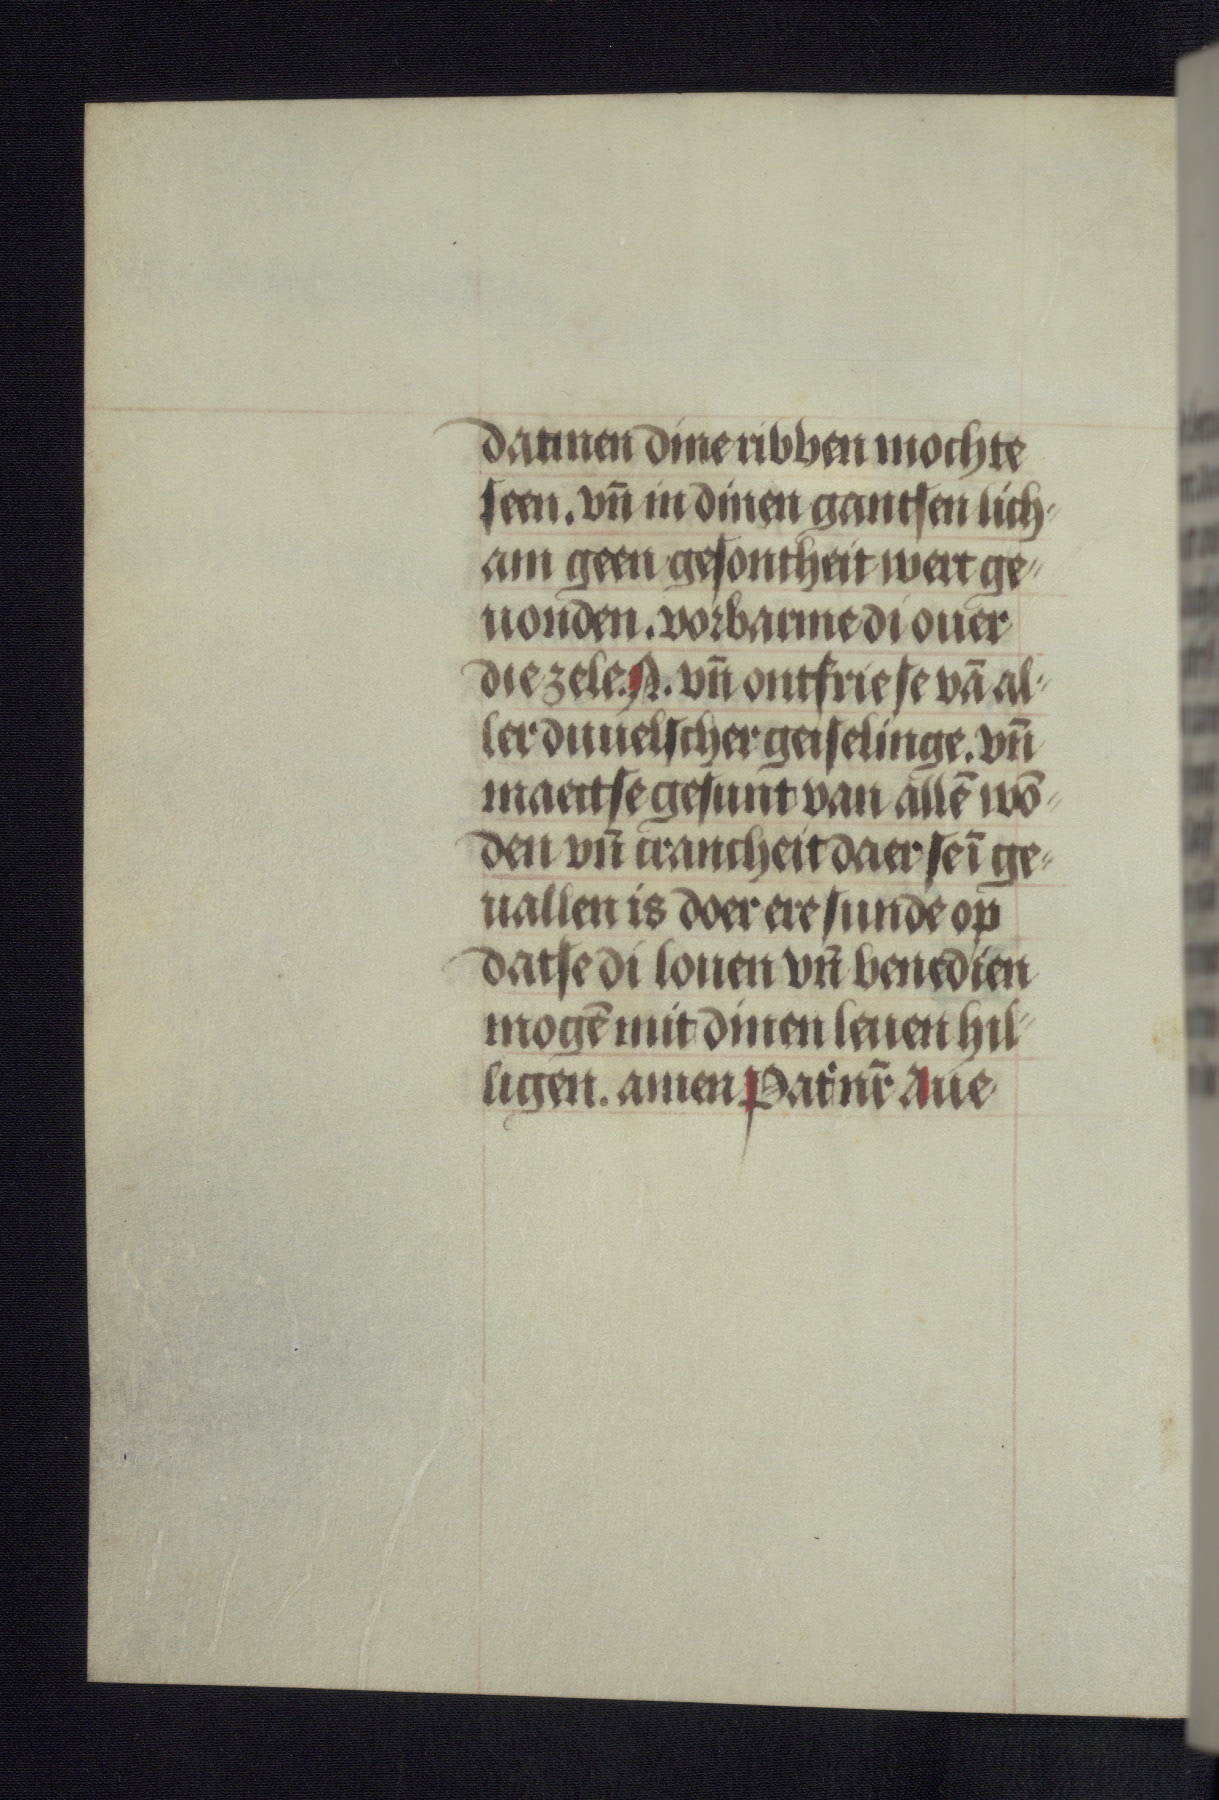 datmen dine ribben mochte
seen. vn̄ in dinen gantsen lich-
am geen gesontheit wert ge-
uonden. vorbarme di ouer
die zele .N. vn̄ ontfriese vā al-
ler duuelscher geiselinge. vn̄
maectse gesunt van allē wō-
den vn̄ cranch‌eit daer se ī ge-
uallen is doer ere sunde op
datse di louen vn̄ benedien
mogē mit dinen leuen hil-
ligen. amen Pat nr̄ Aue